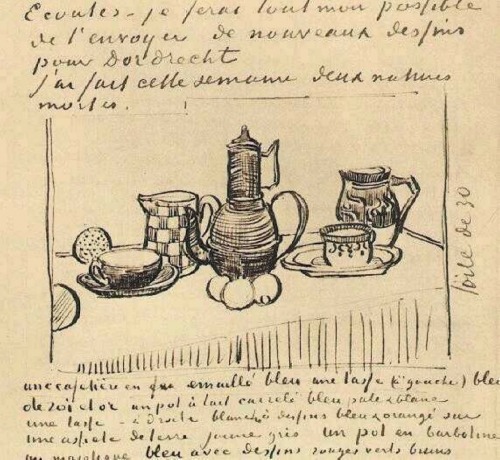 Ecoutes - je ferai tout mon possible
de t'envoyer de nouveaux dessins
pour Dordrecht
J'ai fait cette semaine deux natures
mortes.
toile de 30
une cafetière en fer emaillé bleu une tasse (à gauche) bleu
de roi et or un pot à lait carrelé bleu pale & blanc
une tasse - à droite blanche dessins bleu & orangé sur
une assiete de terre jaune gris un pot en barbotine
ou majolique bleu avec dessins rouges verts bruns